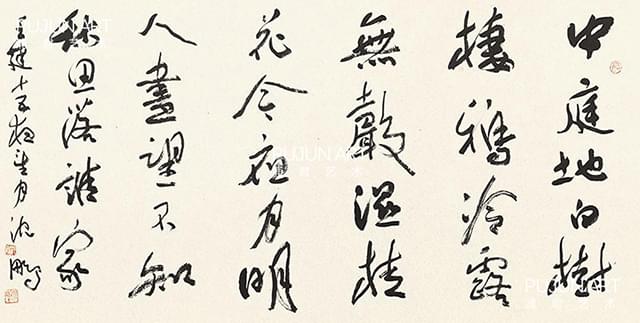 中庭地白樹
棲鴉冷露
無聲濕桂
花今夜月明
人盡望不知
秋思落誰家
王建十五夜望月 沈鵬
PUJUN ART
PUJUN ART
PUJUN ART